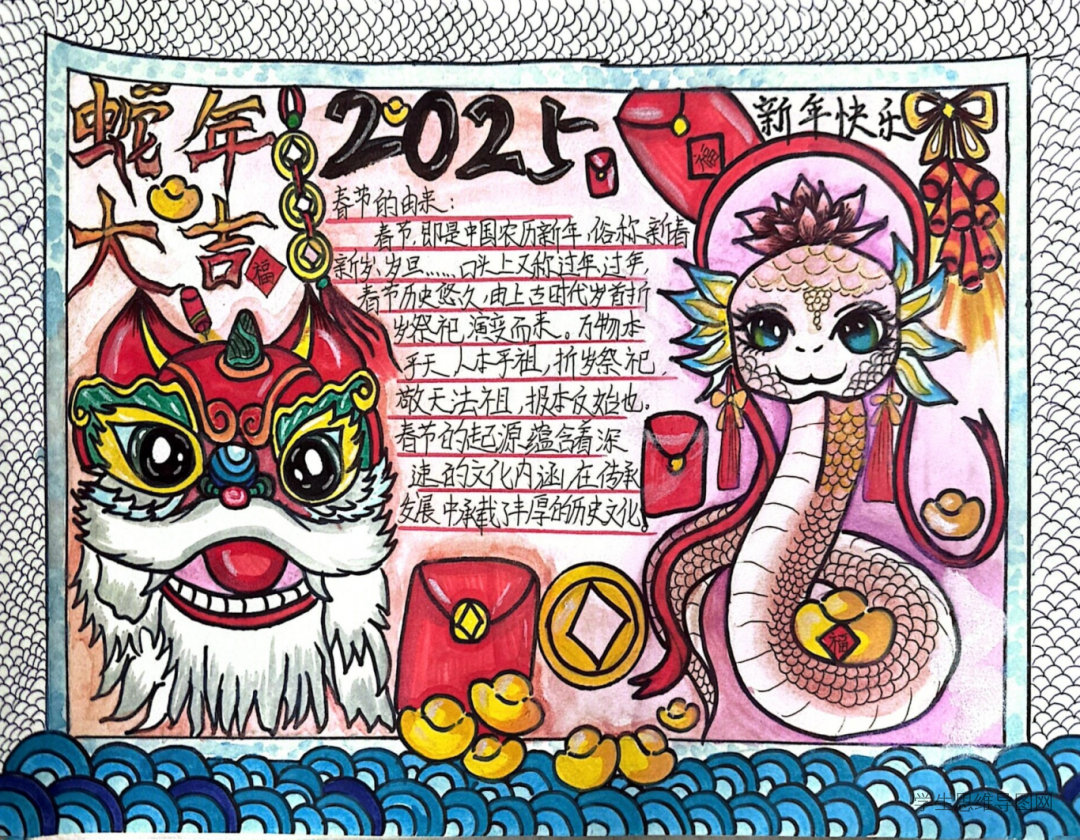 蛇年
大吉
福
2025
新年快乐
福
春节的由来:
春节,即是中国农历新年,俗称新春
新岁、岁旦……口头上又称过年,过年,
春节历史悠久,由上古时代岁首折
岁祭祀演变而来。万物本
乎天人本乎祖,折岁祭祀,
敬天法祖,报本反始也。
春节的起源蕴含着深
速的文化内涵,在传承
发展中承载了丰厚的历史文化。
福
学生思维导图网